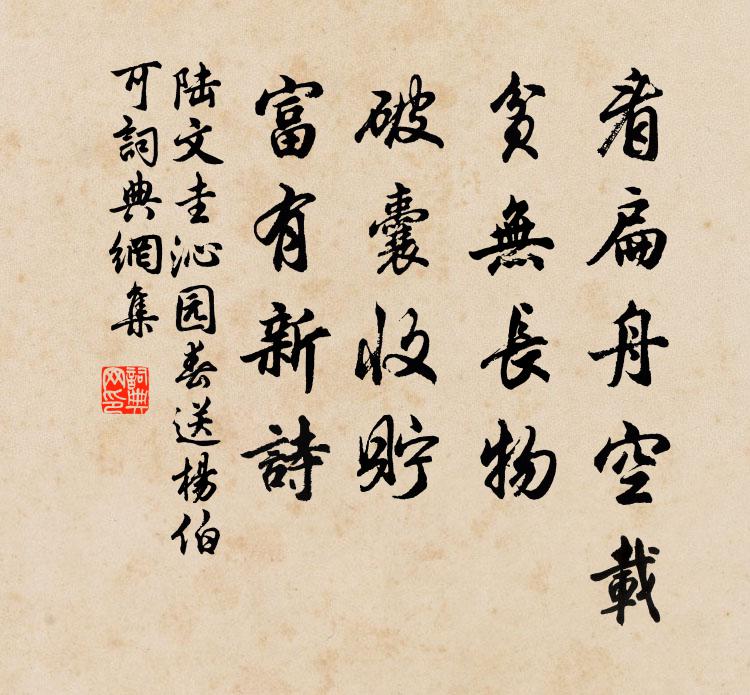 看扁舟空載
貧無長物
破囊收貯
富有新詩
陆文圭沁园春送楊伯
可詞典網集
詞典
网印